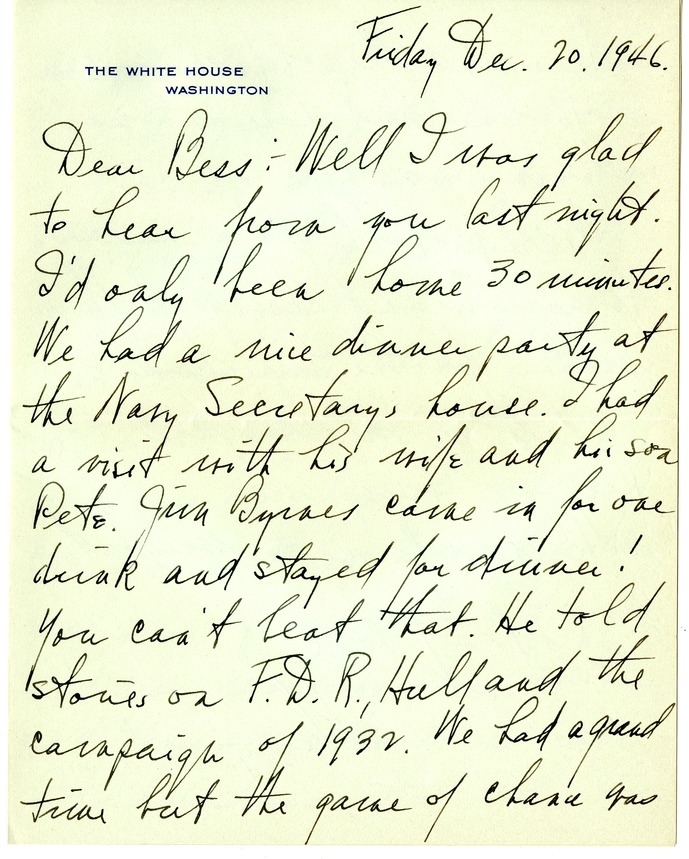 Friday Dec. 20, 1946.
THE WHITE HOUSE
WASHINGTON
Dear Bess:- Well I was glad
to hear from you last night.
I'd only been home 30 minutes.
We had a nice dinner party at
the Navy Secretary's house. I had
a visit with his wife and his son
Pete. Jim Byrnes came in for one
drink and stayed for dinner!
You can't beat that. He told
stories on F.D.R., Hull and the
campaign of 1932. We had a grand
time but the game of chance was